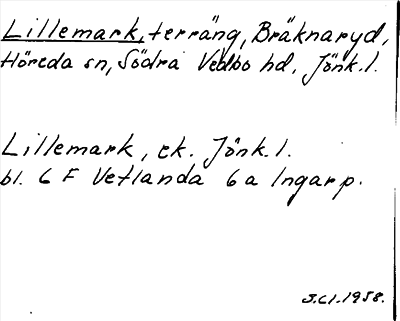 Lillemark, terräng, Bräknaryd,
Höreda sn, Södra Vedbo hd, Jönk. l.
Lillemark, ek. Jönk. l.
bl. 6 F Vetlanda 6 a Ingarp.
J.Cl. 1958.